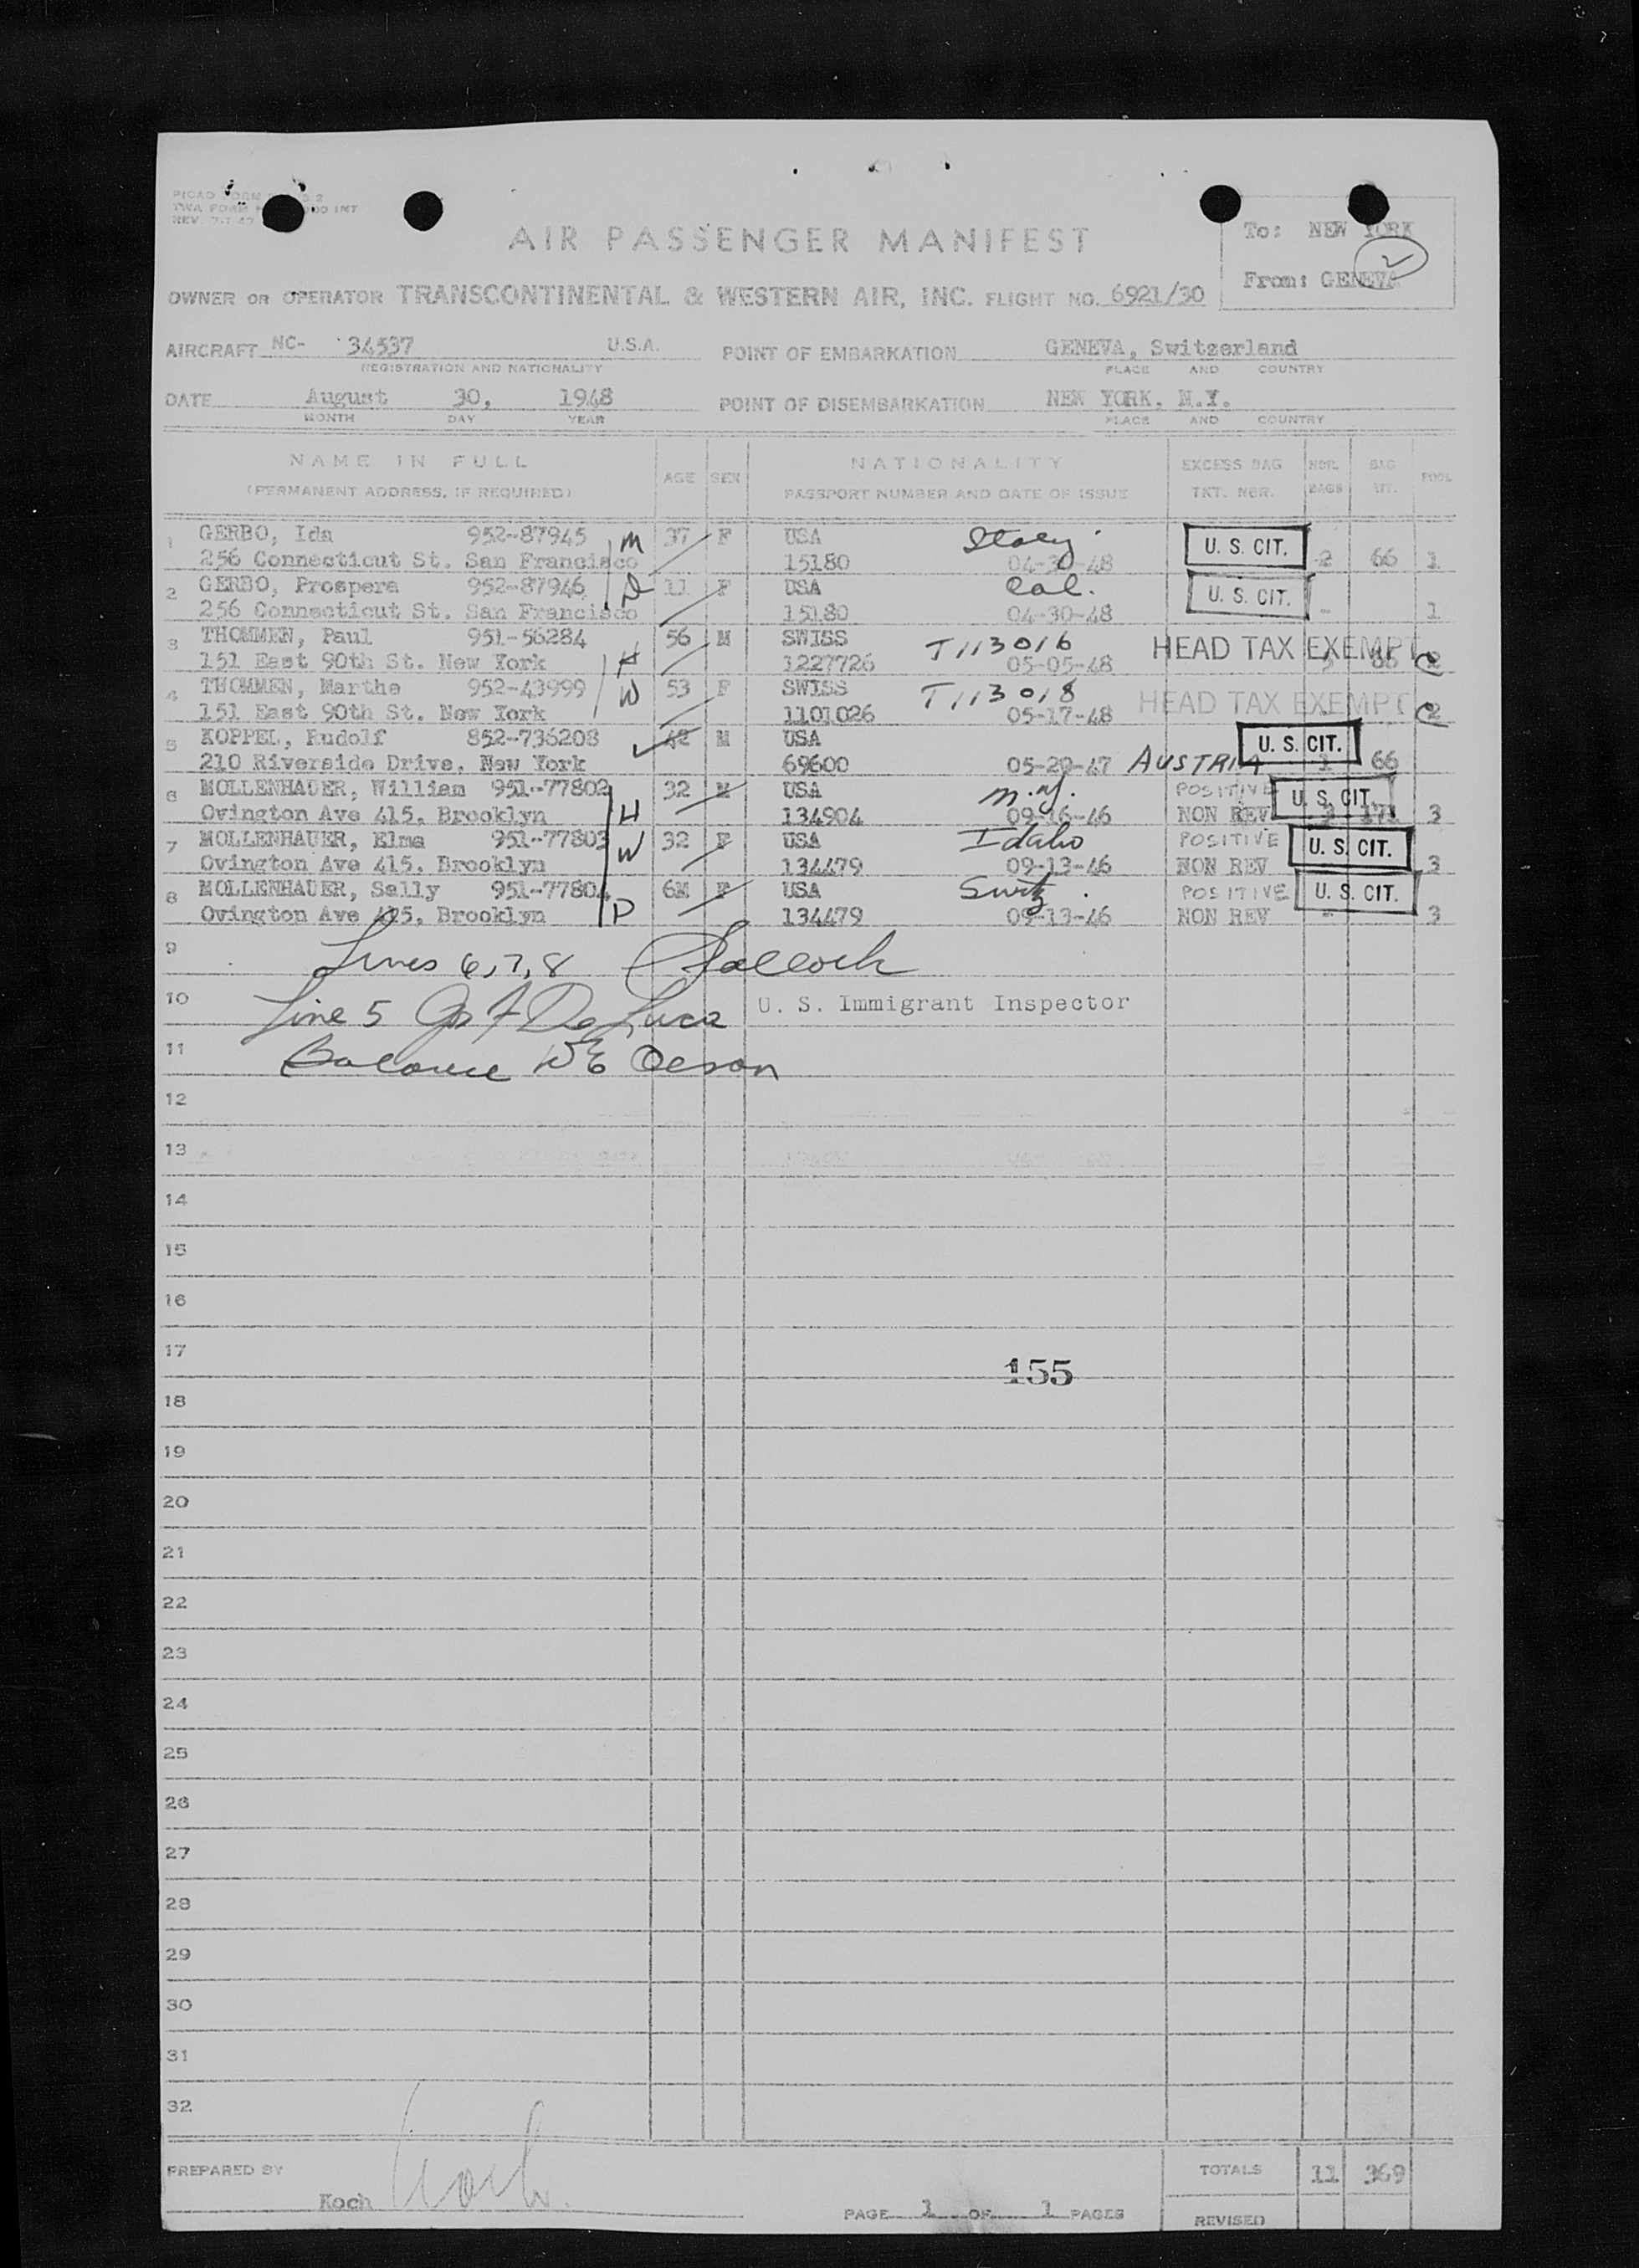 PICAO FORM
TWA FORM
REV. 7-1-47
AIR PASSENGER MANIFEST
To: NEW YORK
2
From: GENEVA
OWNER OR OPERATOR TRANSCONTINENTAL & WESTERN AIR, INC. FLIGHT NO. 6921/30
AIRCRAFT NC- 34537 U.S.A. POINT OF EMBARKATION GENEVA, Switzerland
REGISTRATION AND NATIONALITY PLACE AND COUNTRY
DATE August 30, 1948 POINT OF DISEMBARKATION NEW YORK, N.Y.
MONTH DAY YEAR PLACE AND COUNTRY
NAME IN FULL AGE SEX NATIONALITY EXCESS BAG NBR. BAG POOL
(PERMANENT ADDRESS, IF REQUIRED) PASSPORT NUMBER AND DATE OF ISSUE TKT. NBR. BAGS WT.
1 GERBO, Ida 952-87945 M 37 F USA Italy U. S. CIT.
256 Connecticut St. San Francisco 15180 04-30-48 2 66 1
2 GERBO, Prospera 952-87946 D 11 F USA Cal. U. S. CIT.
256 Connecticut St. San Francisco 15180 04-30-48 - 1
3 THOMMEN, Paul 951-56284 56 M SWISS T113016 HEAD TAX EXEMPT
151 East 90th St. New York H 1227726 05-05-48 2
4 THOMMEN, Marthe 952-43999 W 53 F SWISS T113018 HEAD TAX EXEMPT
151 East 90th St. New York 1101026 05-17-48 2
5 KOPPEL, Rudolf 852-736208 42 M USA U. S. CIT.
210 Riverside Drive, New York 69600 05-29-47 AUSTRIA 1 66
6 MOLLENHAUER, William 951-77802 32 M USA N.Y. POSITIVE U. S. CIT.
Ovington Ave 415, Brooklyn H 134904 09-16-46 NON REV 171 3
7 MOLLENHAUER, Elma 951-77803 W 32 F USA Idaho POSITIVE U. S. CIT.
Ovington Ave 415, Brooklyn 134479 09-13-46 NON REV 3
8 MOLLENHAUER, Sally 951-77804 6M F USA Switz. POSITIVE U. S. CIT.
Ovington Ave 415, Brooklyn D 134479 09-13-46 NON REV - 3
9 Lines 6, 7, 8
10 Line 5 De Luca U. S. Immigrant Inspector
11 Balance WE Olson
12
13
14
15
16
17 155
18
19
20
21
22
23
24
25
26
27
28
29
30
31
32
PREPARED BY TOTALS 11 369
Koch Koch
PAGE 1 OF 1 PAGES REVISED